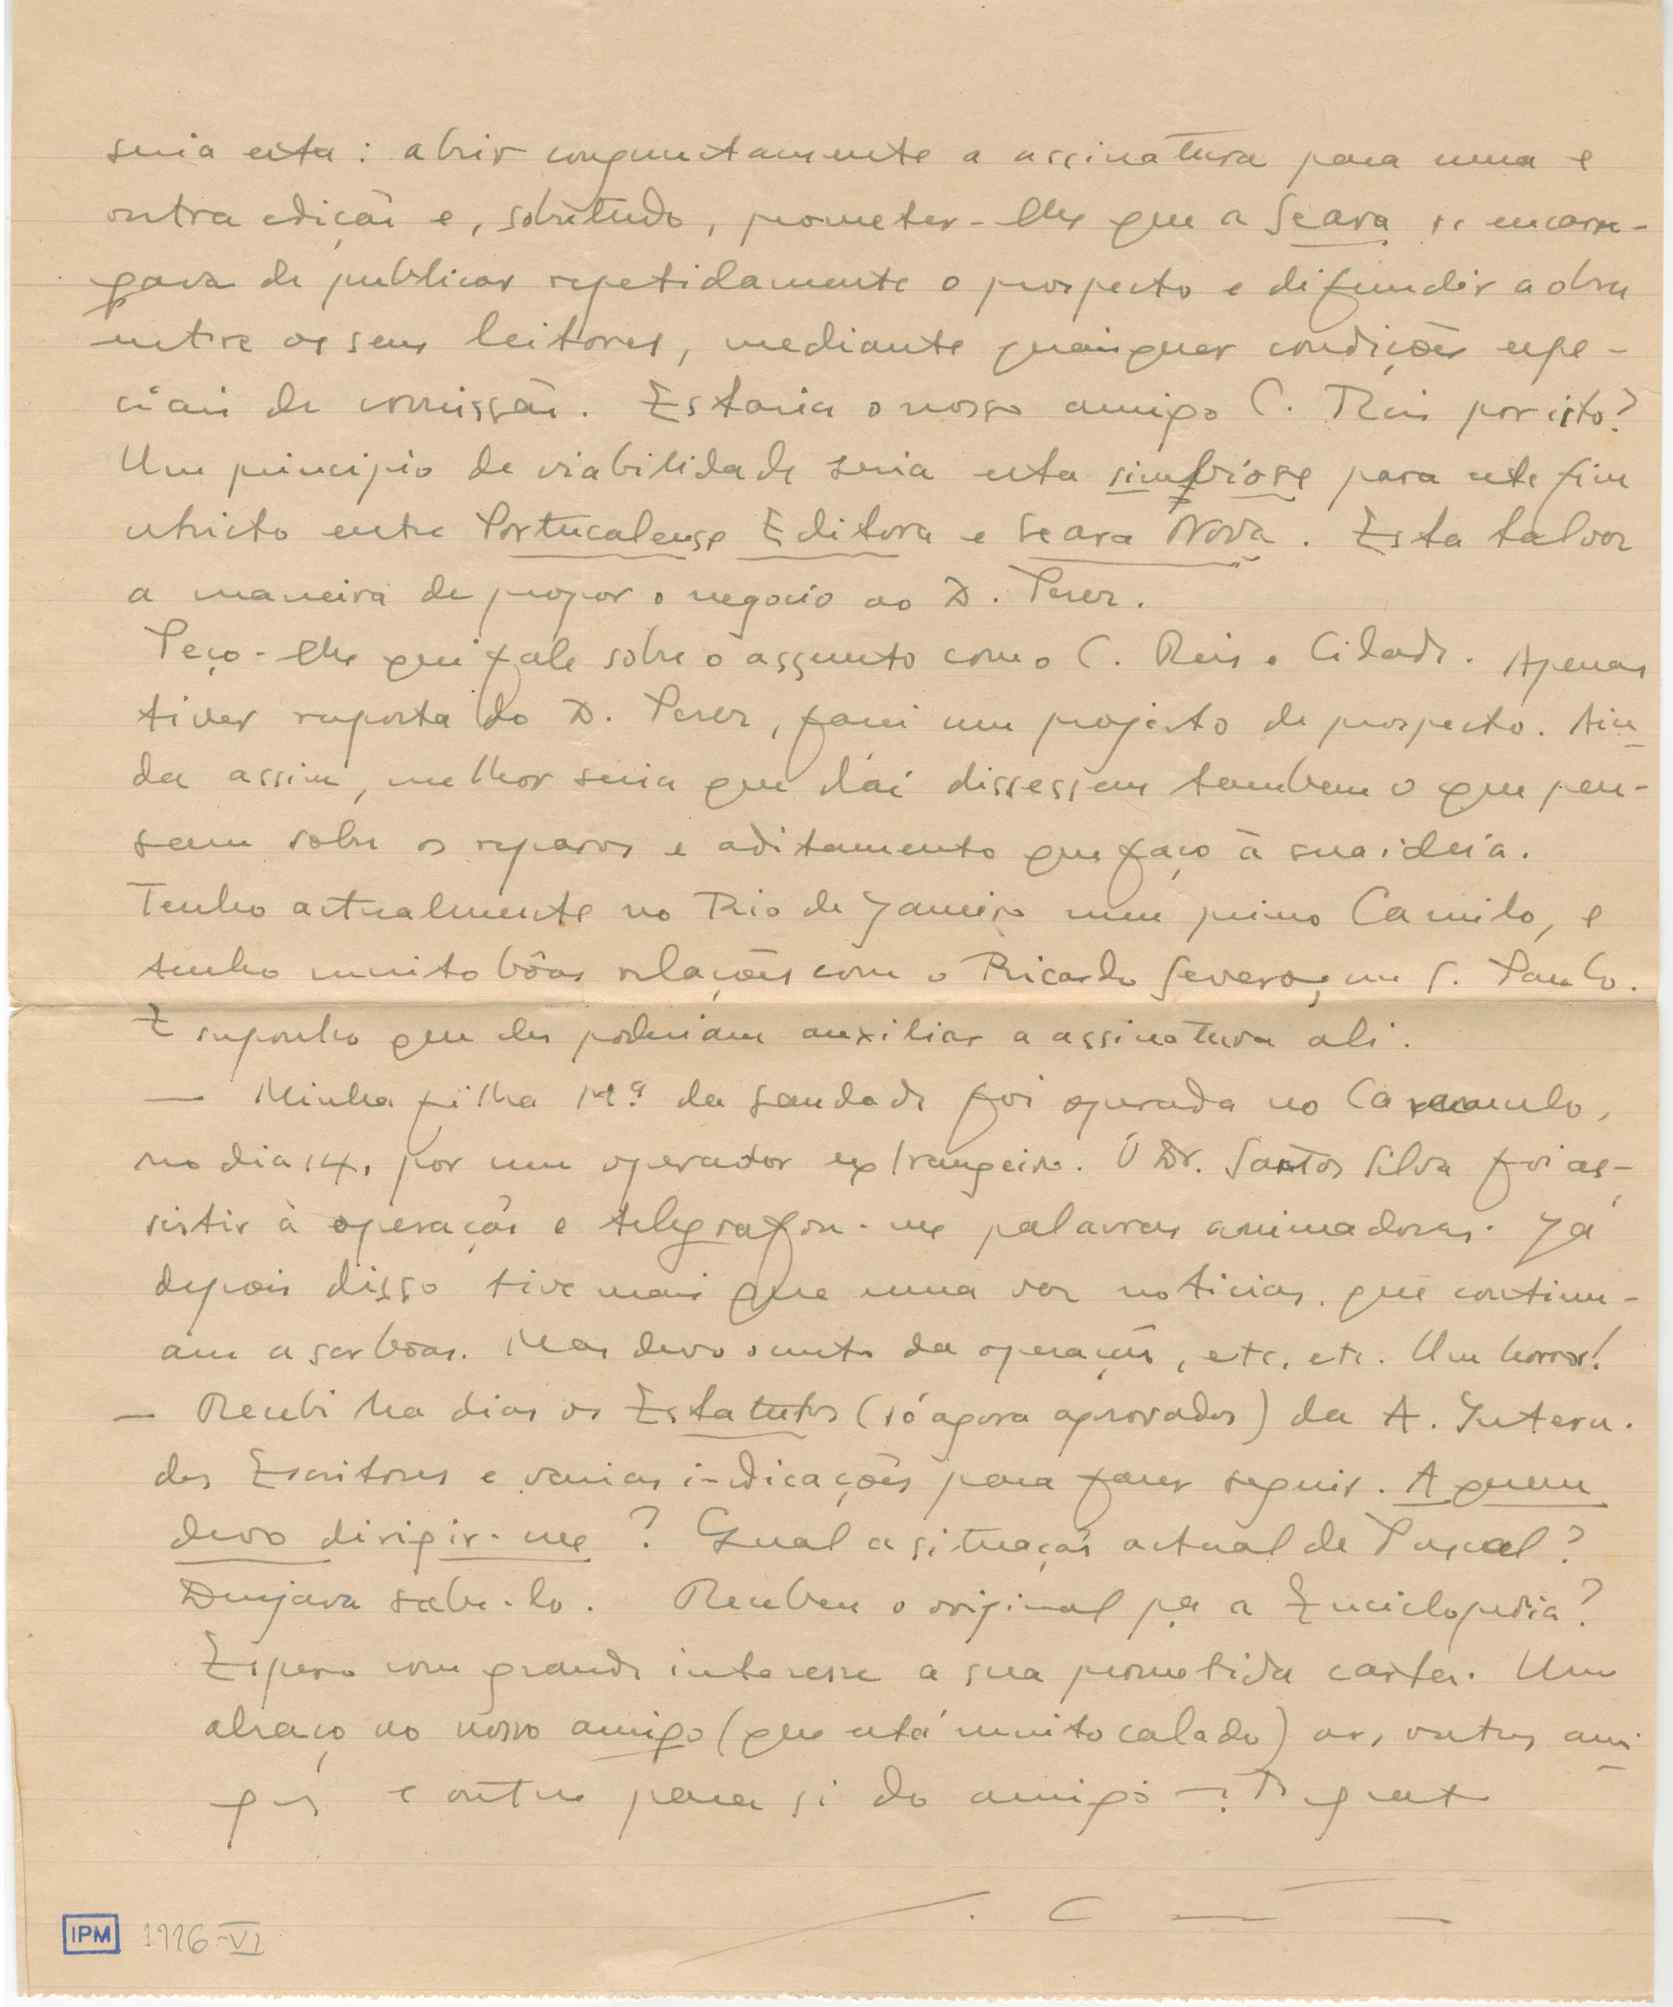 seria esta: abrir conjuntamente a assinatura para uma e
outra edição e, sobretudo, prometer-lhe que a Seara se encarre-
gava de publicar repetidamente o prospecto e difundir a obra
entre os seus leitores, mediante quaisquer condições espe-
ciais de comissão. Estaria o nosso amigo C. Reis por isto?
Um principio de viabilidade seria esta simbiose para este fim
stricto entre Portucalense Editora e Seara Nova. Esta talvez
a maneira de propor o negocio ao D. Peres.
Peço-lhe que fale sobre o assunto com o C. Reis e Cidade. Apenas
tiver resposta do D. Peres, farei um projecto de prospecto. Ain-
da assim, melhor seria que daí dissessem tambem o que pen-
sam sobre os reparos e aditamento que faço à sua ideia.
Tenho actualmente no Rio de Janeiro meu primo Camilo, e
tenho muito bôas relações com o Ricardo Severo, em S. Paulo.
E suponho que eles poderiam auxiliar a assinatura ali.
— Minha filha Mª. da Saudade foi operada no Caramulo,
no dia 14, por um operador extrangeiro. O Dr. Santos Silva foi as-
sistir à operação e telegrafou-me palavras animadoras. Já
depois disso tive mais que uma vez noticias, que continu-
am a ser bôas. Mas devo o custo da operação, etc. etc. Um horror!
— Recebi ha dias os Estatutos (só agora aprovados) da A. Intern.
dos Escritores e varias indicações para fazer seguir. A quem
devo dirigir-me? Qual a situação actual de Pascoal?
Desejava sabe-lo. Receberam o original pª a Enciclopedia?
Espero com grande interesse a sua prometida carta. Um
abraço ao nosso amigo (que está muito calado) aos outros ami-
gos e outro para si do amigo
IPM 1996-VI